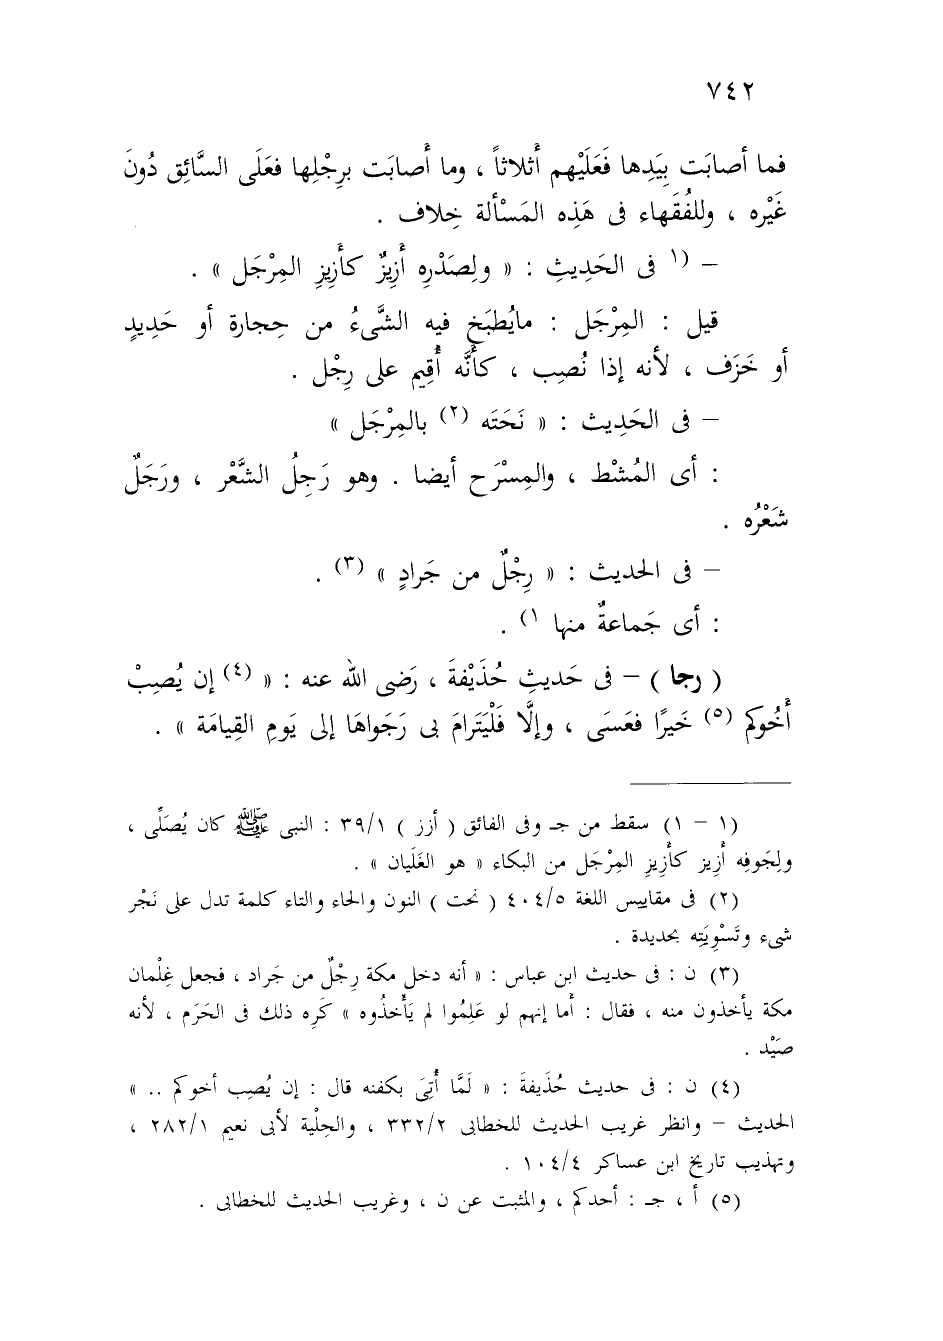 ٧٤٢
فما أصابَت بِيَدِها فَعَلَيْهم أَثلاثاً ، وما أَصابَت برِجْلِها فعَلَى السَّائِق دُونَ
غَيْره ، وللفُقَهاء فى هَذِه المَسْألة خِلاف .
– (١ فى الحَدِيثِ : « ولِصَدْرِه أَزِيزٌ كأَزِيزِ المِرْجَل » .
قيل : المِرْجَل : مايُطبَخ فيه الشَّىءُ من حِجارة أو حَدِيدٍ
أو خَزَف ، لأنه إذا نُصِب ، كأَنَّه أُقِيم على رِجْل .
– فى الحَدِيث : « نَحَتَه (٢) بالمِرْجَل »
: أى المُشْط ، والمِسْرَح أيضا . وهو رَجِلُ الشَّعْر ، ورَجَلٌ
شَعْرُه .
– فى الحديث : « رِجْلٌ من جَرادٍ » (٣) .
: أى جَماعةٌ منها ١) .
( رجا ) – فى حَديثِ حُذَيْفةَ ، رَضى الله عنه : « (٤) إن يُصِبْ
أَخُوكم (٥) خَيرًا فعَسَى ، وإلَّا فَلْيَترامَ بى رَجَواهَا إلى يَومِ القِيامَة » .
(١ – ١) سقط من جـ وفى الفائق ( أزز ) ٣٩/١ : النبى ﷺ كان يُصَلِّى ،
ولِجَوفِه أَزِيز كأَزِيزِ المِرْجَل من البكاء « هو الغَلَيان » .
(٢) فى مقاييس اللغة ٤٠٤/٥ ( نحت ) النون والحاء والتاء كلمة تدل على نَجْر
شىء وتَسْوِيَتِه بحديدة .
(٣) ن : فى حديث ابن عباس : « أنه دخل مكة رِجْلٌ من جَراد ، فجعل غِلْمان
مكة يأخذون منه ، فقال : أما إنهم لو عَلِمُوا لم يَأْخذُوه » كَرِه ذلك فى الحَرَم ، لأنه
صَيْد .
(٤) ن : فى حديث حُذَيفةَ : « لَمَّا أُتِىَ بكفنه قال : إن يُصِب أخوكم .. »
الحديث – وانظر غريب الحديث للخطابى ٣٣٢/٢ ، والحِلْية لأبى نعيم ٢٨٢/١ ،
وتهذيب تاريخ ابن عساكر ١٠٤/٤ .
(٥) أ ، جـ : أحدكم ، والمثبت عن ن ، وغريب الحديث للخطابى .